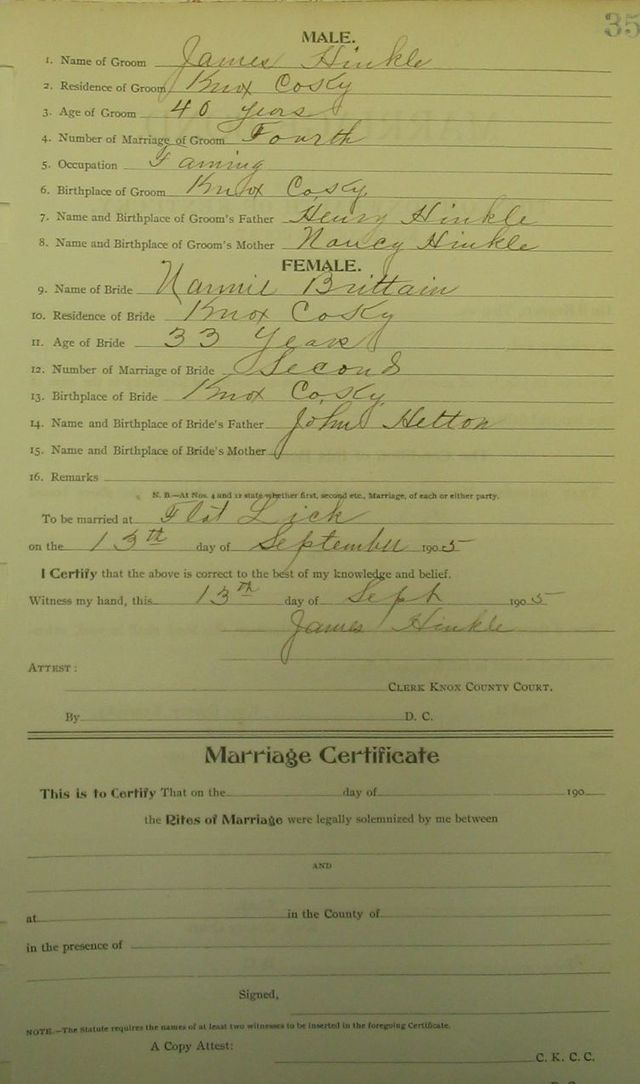 35
MALE.
1. Name of Groom James Hinkle
2. Residence of Groom Knox Co Ky
3. Age of Groom 40 years
4. Number of Marriage of Groom Fourth
5. Occupation Faming
6. Birthplace of Groom Knox Co, Ky,
7. Name and Birthplace of Groom's Father Henry Hinkle
8. Name and Birthplace of Groom's Mother Nancy Hinkle
FEMALE.
9. Name of Bride Nannie Brittain
10. Residence of Bride Knox Co Ky
11. Age of Bride 33 Years
12. Number of Marriage of Bride Second
13. Birthplace of Bride Knox Co, Ky,
14. Name and Birthplace of Bride's Father John Helton
15. Name and Birthplace of Bride's Mother
16. Remarks
N. B.—At Nos. 4 and 12 state whether first, second etc., Marriage, of each or either party.
To be married at Flat Lick
on the 13th day of September 1905
I Certify that the above is correct to the best of my knowledge and belief.
Witness my hand, this 13th day of Sept 1905
James Hinkle
ATTEST:
CLERK KNOX COUNTY COURT.
By D. C.
Marriage Certificate
This is to Certify That on the day of 190
the Rites of Marriage were legally solemnized by me between
AND
at in the County of
in the presence of
Signed,
NOTE.—The Statute requires the names of at least two witnesses to be inserted in the foregoing Certificate.
A Copy Attest:
C. K. C. C.